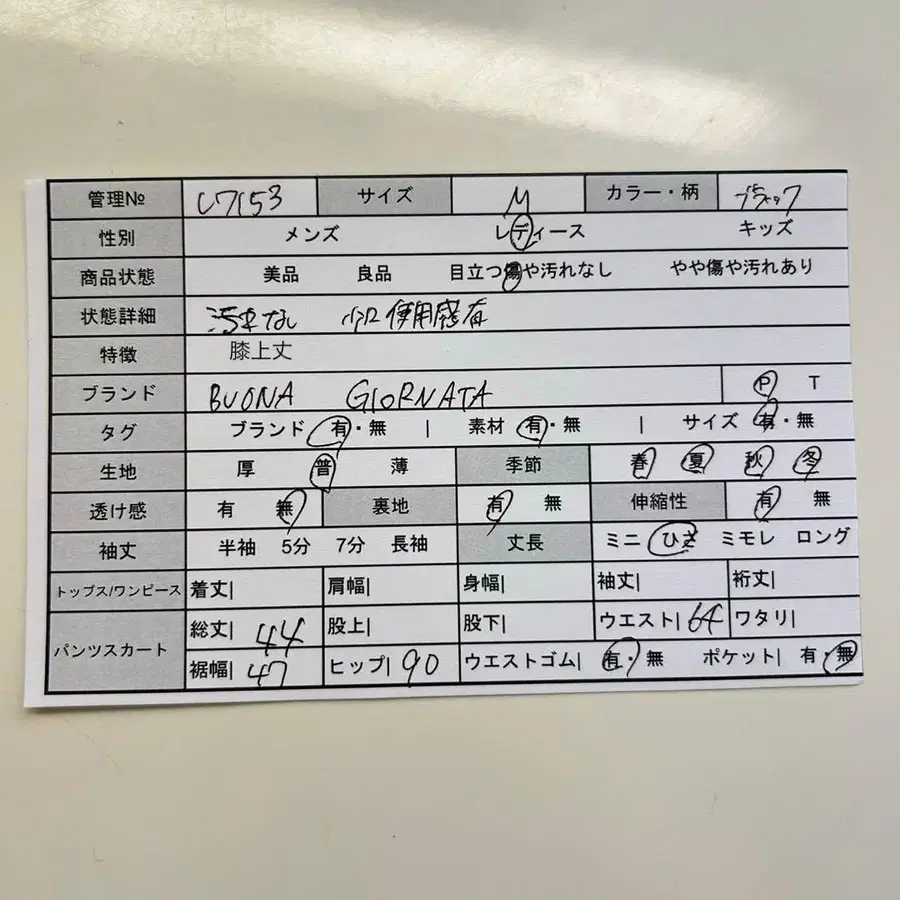 管理№ L7153 サイズ M カラー・柄 ブラック
性別 メンズ レディース キッズ
商品状態 美品 良品 目立つ傷や汚れなし やや傷や汚れあり
状態詳細 汚れなし 少口使用感有
特徴 膝上丈
ブランド BUONA GIORNATA P T
タグ ブランド 有・無 | 素材 有・無 | サイズ 有・無
生地 厚 普 薄 季節 春 夏 秋 冬
透け感 有 無 裏地 有 無 伸縮性 有 無
袖丈 半袖 5分 7分 長袖 丈長 ミニ ひざ ミモレ ロング
トップス/ワンピース 着丈| 肩幅| 身幅| 袖丈| 裄丈|
パンツスカート 総丈| 44 股上| 股下| ウエスト| 64 ワタリ|
裾幅| 47 ヒップ| 90 ウエストゴム| 有・無 ポケット| 有・無